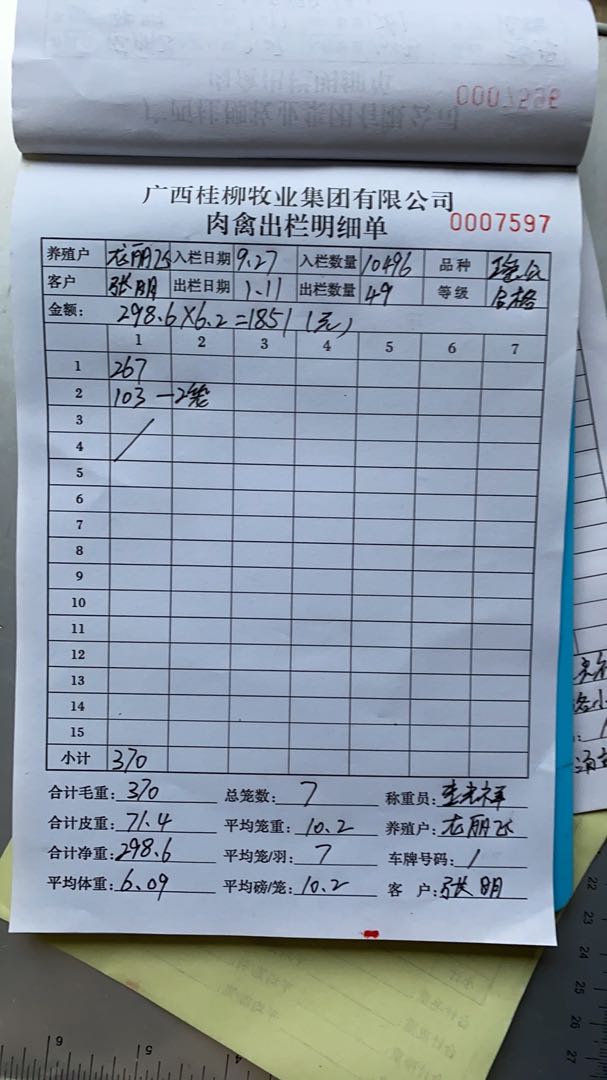 0007596
广西桂柳牧业集团有限公司
肉禽出栏明细单 0007597
养殖户 龙丽飞 入栏日期 9.27 入栏数量 10496 品种
客户 张明 出栏日期 1.11 出栏数量 49 等级 合格
金额: 298.6×6.2=1851(元)
1 2 3 4 5 6 7
1 267
2 103 —2笼
3
4
5
6
7
8
9
10
11
12
13
14
15
小计 370
合计毛重: 370 总笼数: 7 称重员:
合计皮重: 71.4 平均笼重: 10.2 养殖户: 龙丽飞
合计净重: 298.6 平均笼/羽: 7 车牌号码: /
平均体重: 6.09 平均磅/笼: 10.2 客 户: 张明
6 5 4 3
22
23
24
25
26
27